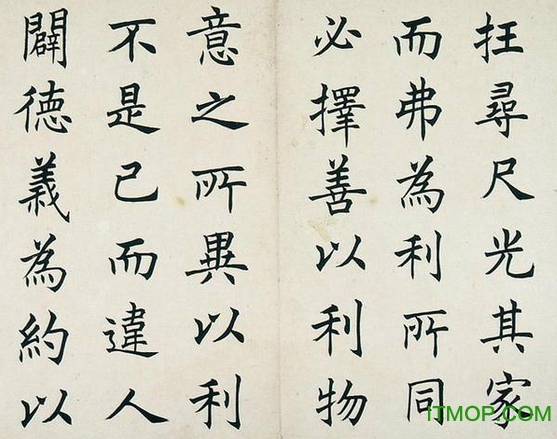 抂尋尺光其家
而弗為利所同
必擇善以利物
意之所異以利
不是己而違人
闢德義為約以
ITMOP.COM